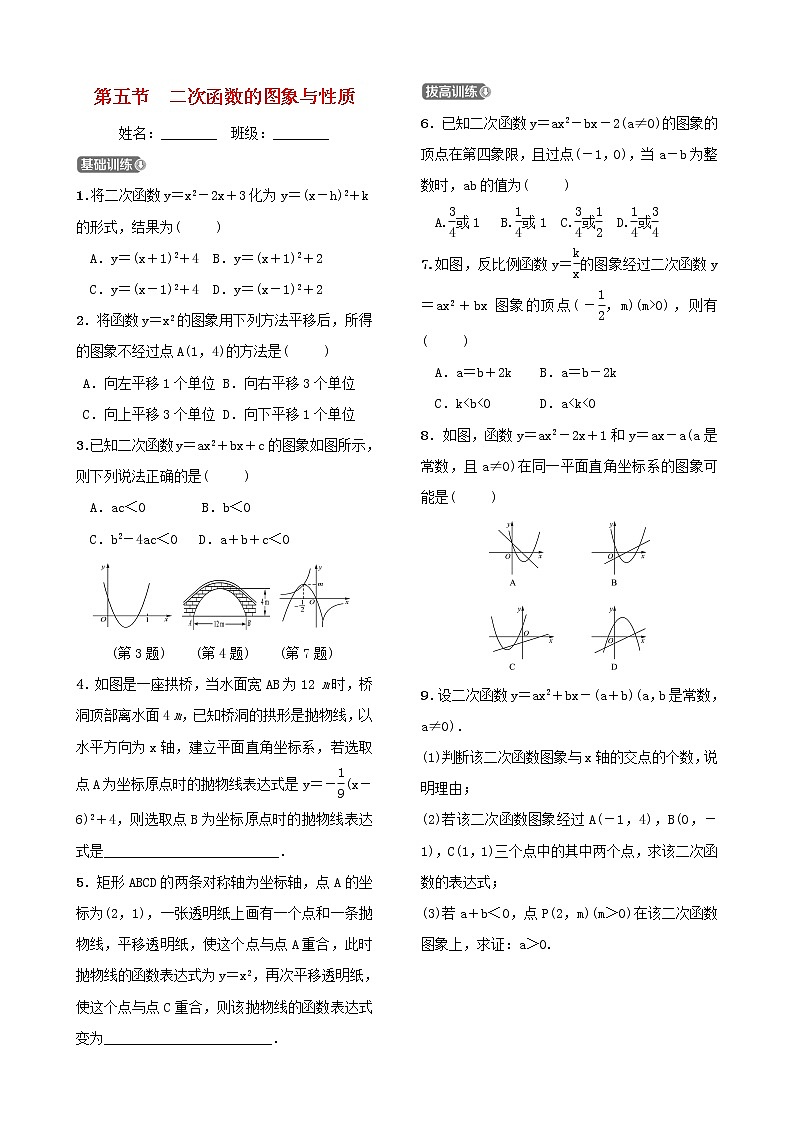 第五节　二次函数的图象与性质
姓名：________　班级：________
基础训练
1.将二次函数y＝x²－2x＋3化为y＝(x－h)²＋k
的形式，结果为(　　)
A．y＝(x＋1)²＋4　B．y＝(x＋1)²＋2
C．y＝(x－1)²＋4　D．y＝(x－1)²＋2
2．将函数y＝x²的图象用下列方法平移后，所得
的图象不经过点A(1，4)的方法是(　　)
A．向左平移1个单位 B．向右平移3个单位
C．向上平移3个单位 D．向下平移1个单位
3.已知二次函数y＝ax²＋bx＋c的图象如图所示，
则下列说法正确的是(　　)
A．ac＜0　　　B．b＜0
C．b²－4ac＜0　D．a＋b＋c＜0
y O 1 x
A 12m B 4m
y m －1/2 O x
(第3题)　(第4题)　(第7题)
4．如图是一座拱桥，当水面宽AB为12 m时，桥
洞顶部离水面4 m，已知桥洞的拱形是抛物线，以
水平方向为x轴，建立平面直角坐标系，若选取
点A为坐标原点时的抛物线表达式是y＝－1/9(x－
6)²＋4，则选取点B为坐标原点时的抛物线表达
式是________________________．
5．矩形ABCD的两条对称轴为坐标轴，点A的坐
标为(2，1)，一张透明纸上画有一个点和一条抛
物线，平移透明纸，使这个点与点A重合，此时
抛物线的函数表达式为y＝x²，再次平移透明纸，
使这个点与点C重合，则该抛物线的函数表达式
变为________________________．
拔高训练
6．已知二次函数y＝ax²－bx－2(a≠0)的图象的
顶点在第四象限，且过点(－1，0)，当a－b为整
数时，ab的值为(　　)
A.3/4或1　B.1/4或1　C.3/4或1/2　D.1/4或3/4
7.如图，反比例函数y＝k/x的图象经过二次函数y
＝ax²＋bx图象的顶点(－1/2，m)(m>0)，则有
(　　)
A．a＝b＋2k　　B．a＝b－2k
C．k<b<0　　D．a<k<0
8．如图，函数y＝ax²－2x＋1和y＝ax－a(a是
常数，且a≠0)在同一平面直角坐标系的图象可
能是(　　)
y O x　y O x
A　B
y O x　y O x
C　D
9．设二次函数y＝ax²＋bx－(a＋b)(a，b是常数，
a≠0)．
(1)判断该二次函数图象与x轴的交点的个数，说
明理由；
(2)若该二次函数图象经过A(－1，4)，B(0，－
1)，C(1，1)三个点中的其中两个点，求该二次函
数的表达式；
(3)若a＋b＜0，点P(2，m)(m＞0)在该二次函数
图象上，求证：a＞0.